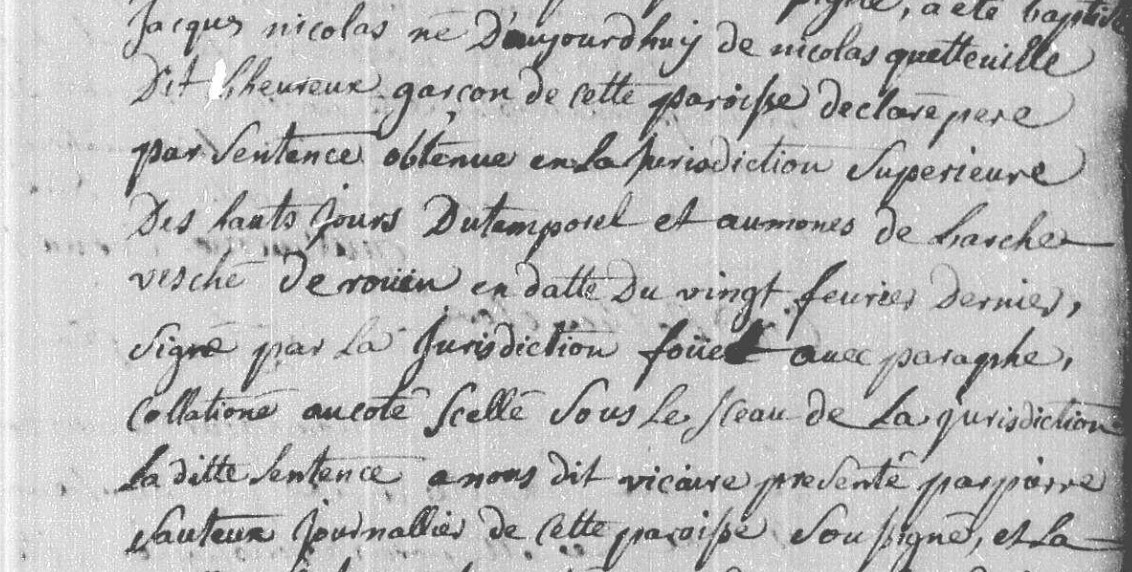 signé, a été baptisé
Jacques nicolas né D'aujourdhuij de nicolas quetteuille
Dit Lheureux garçon de cette paroisse declaré pere
par Sentence obtenue en La Jurisdiction Superieure
Des hauts Jours Dutemporel et aumones de Larche
vesché de roüen en datte Du vingt feurier Dernier,
signé par La Jurisdiction foüet auec paraphe,
Collationé aucoté Scellé Sous Le Sceau de La jurisdiction
La ditte Sentence a nous dit vicaire presenté parpierre
Sauteux Journallier de Cette paroisse Soussigné, et La